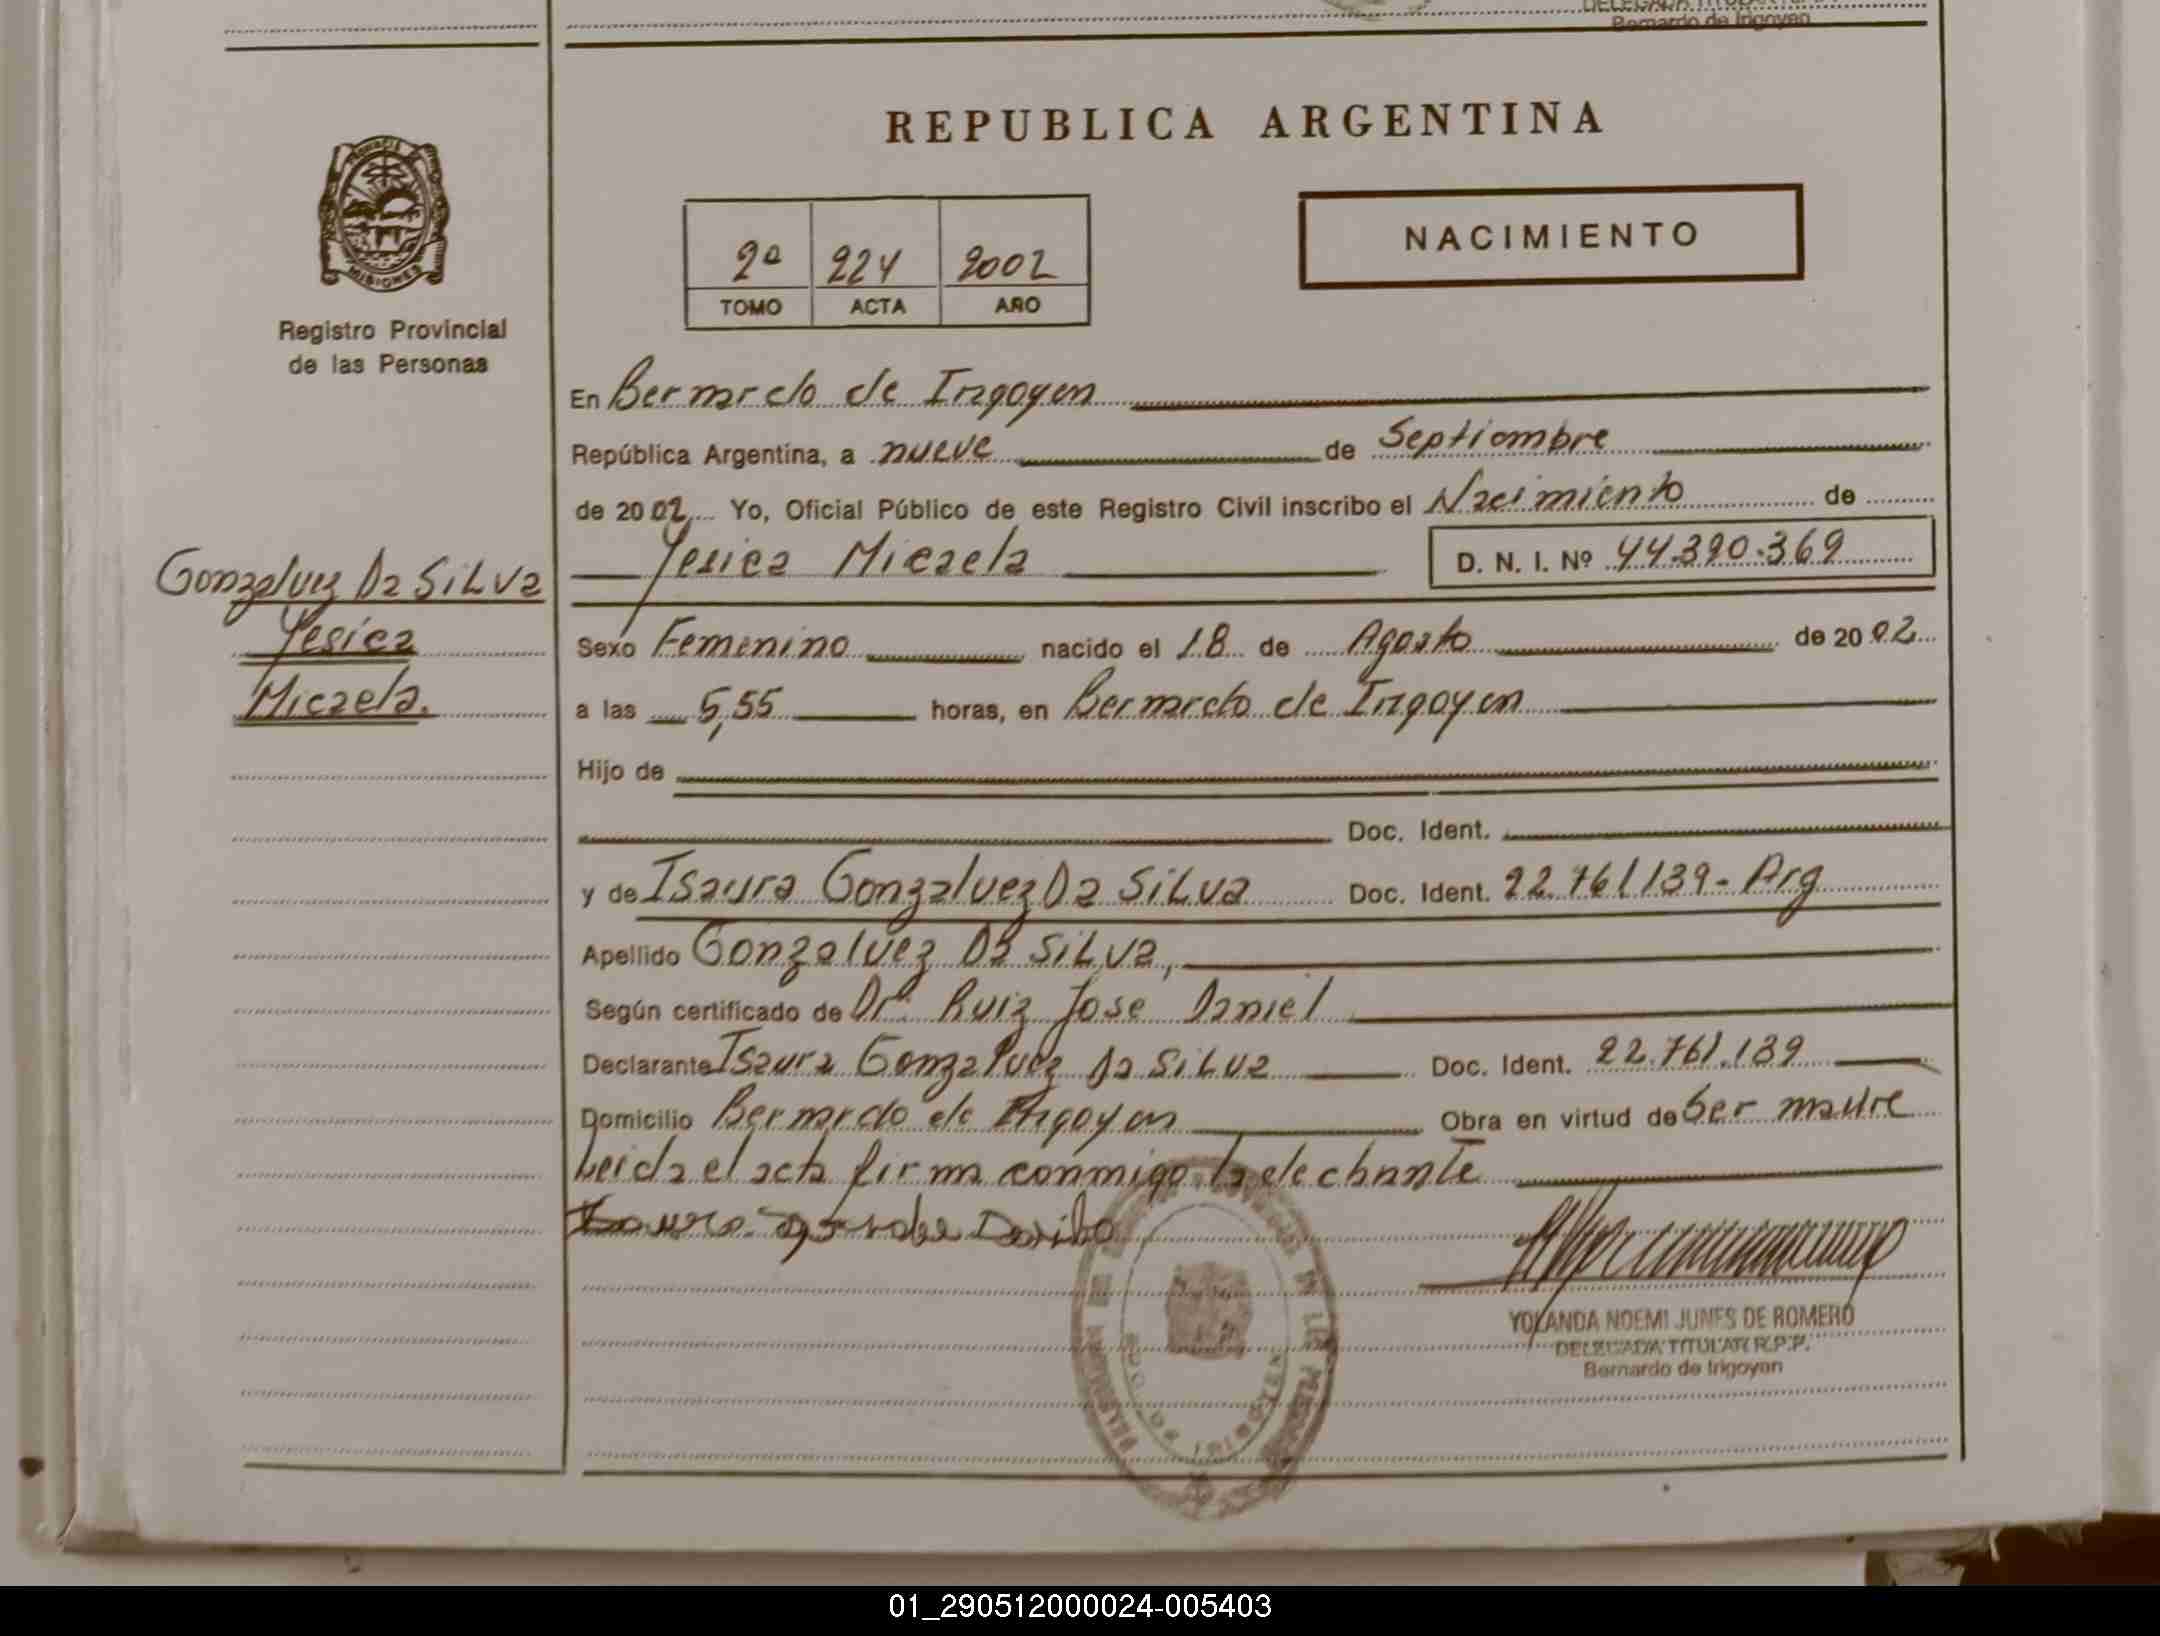 DELEGADA TITULAR R.P.P.
Bernardo de Irigoyen
REPUBLICA ARGENTINA
MISIONES
2ª 224 2002
TOMO ACTA AÑO
NACIMIENTO
Registro Provincial
de las Personas
En Bernardo de Irigoyen
República Argentina, a nueve de Septiembre
de 2002 Yo, Oficial Público de este Registro Civil inscribo el Nacimiento de
Yesica Micaela D. N. I. Nº 44.390.369
Gonzalvez Da SiLva
Yesica
Micaela.
Sexo Femenino nacido el 18 de Agosto de 2002
a las 5,55 horas, en Bernardo de Irigoyen
Hijo de
Doc. Ident.
y de Isaura Gonzalvez Da SiLva Doc. Ident. 22.761.139- Arg
Apellido Gonzalvez Da SiLva,
Según certificado de Dr. Ruiz Jose Daniel
Declarante Isaura Gonzalvez Da SiLva Doc. Ident. 22.761.139
Domicilio Bernardo de Irigoyen Obra en virtud de Ser madre
Leida el acta firma conmigo la
YOLANDA NOEMI JUNES DE ROMERO
DELEGADA TITULAR R.P.P.
Bernardo de Irigoyen
01_290512000024-005403